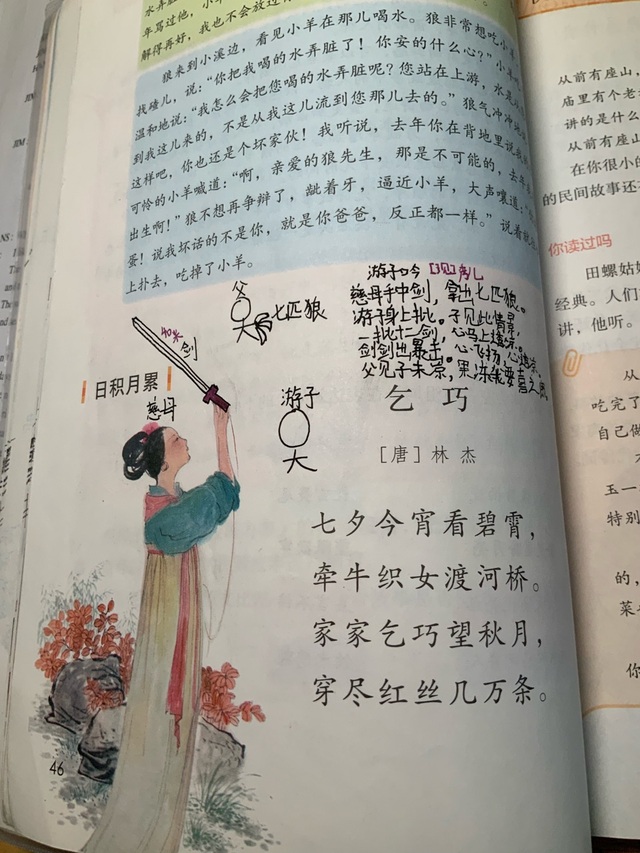 水弄脏
年骂过他，小羊
解得再好，我也不会放过
狼来到小溪边，看见小羊在那儿喝水。狼非常想吃小羊
找碴儿，说：“你把我喝的水弄脏了！你安的什么心？”
温和地说：“我怎么会把您喝的水弄脏呢？您站在上游，水是
到我这儿来的，不是从我这儿流到您那儿去的。”狼气冲冲地
这样吧，你也还是个坏家伙！我听说，去年你在背地里说我
可怜的小羊喊道：“啊，亲爱的狼先生，那是不可能的，去年
出生啊！”狼不想再争辩了，龇着牙，逼近小羊，大声嚷道：“
蛋！说我坏话的不是你，就是你爸爸，反正都一样。”说着就
上扑去，吃掉了小羊。
游子吟
慈母手中剑，拿出七匹狼。
游子身上批。子见此情景，
一批十二剑，心马上
剑剑出暴击。心飞扬，心
父见子未凉，果冻我要喜之
父
七匹狼
剑
日积月累
慈母
游子
乞巧
［唐］林杰
七夕今宵看碧霄，
牵牛织女渡河桥。
家家乞巧望秋月，
穿尽红丝几万条。
46
从前有座山，
庙里有个老
讲的是什么
从前有座山
在你很小的
的民间故事还
你读过吗
田螺姑娘
经典。人们
讲，他听。
从
吃完了
自己做
玉一
特别
的，
菜
你